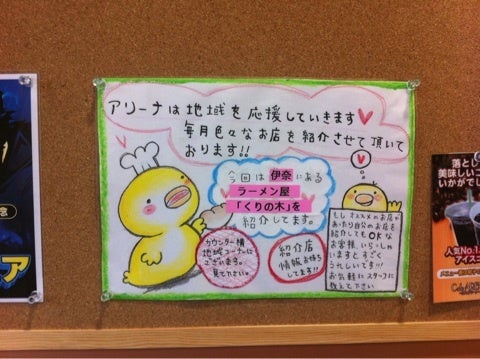 アリーナは地域を応援していきます
毎月色々なお店を紹介させて頂いて
おります!!
今回は伊奈にある
ラーメン屋
「くりの木」を
紹介してます。
カウンター横
地域コーナーに
ございます。
見て下さい。
紹介店
情報お待ち
してます!!
もしオススメのお店が
あったり自分のお店を
紹介してもOKな
お客様、いらっしゃ
いますとすごく
うれしいです!!
お気軽にスタッフに
教えて下さい
念
ア
落とし
美味しいコ
いかがでし
人気No.1
アイスコ